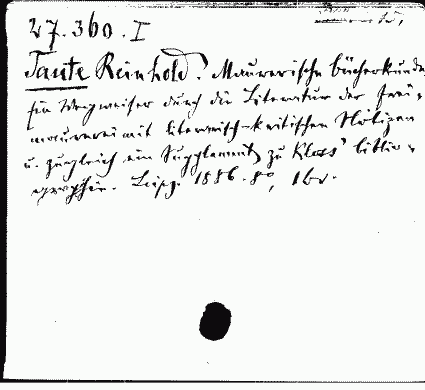 27.360.I
Taute Reinhold. Maurerische Bücherkunde
Ein Wegweiser durch die Literatur der Frei-
maurerei mit literarisch-kritischen Notizen
u. zugleich ein Supplement zu Kloss' Biblio-
graphie. Leipz. 1886. 8°, 1 Bd.